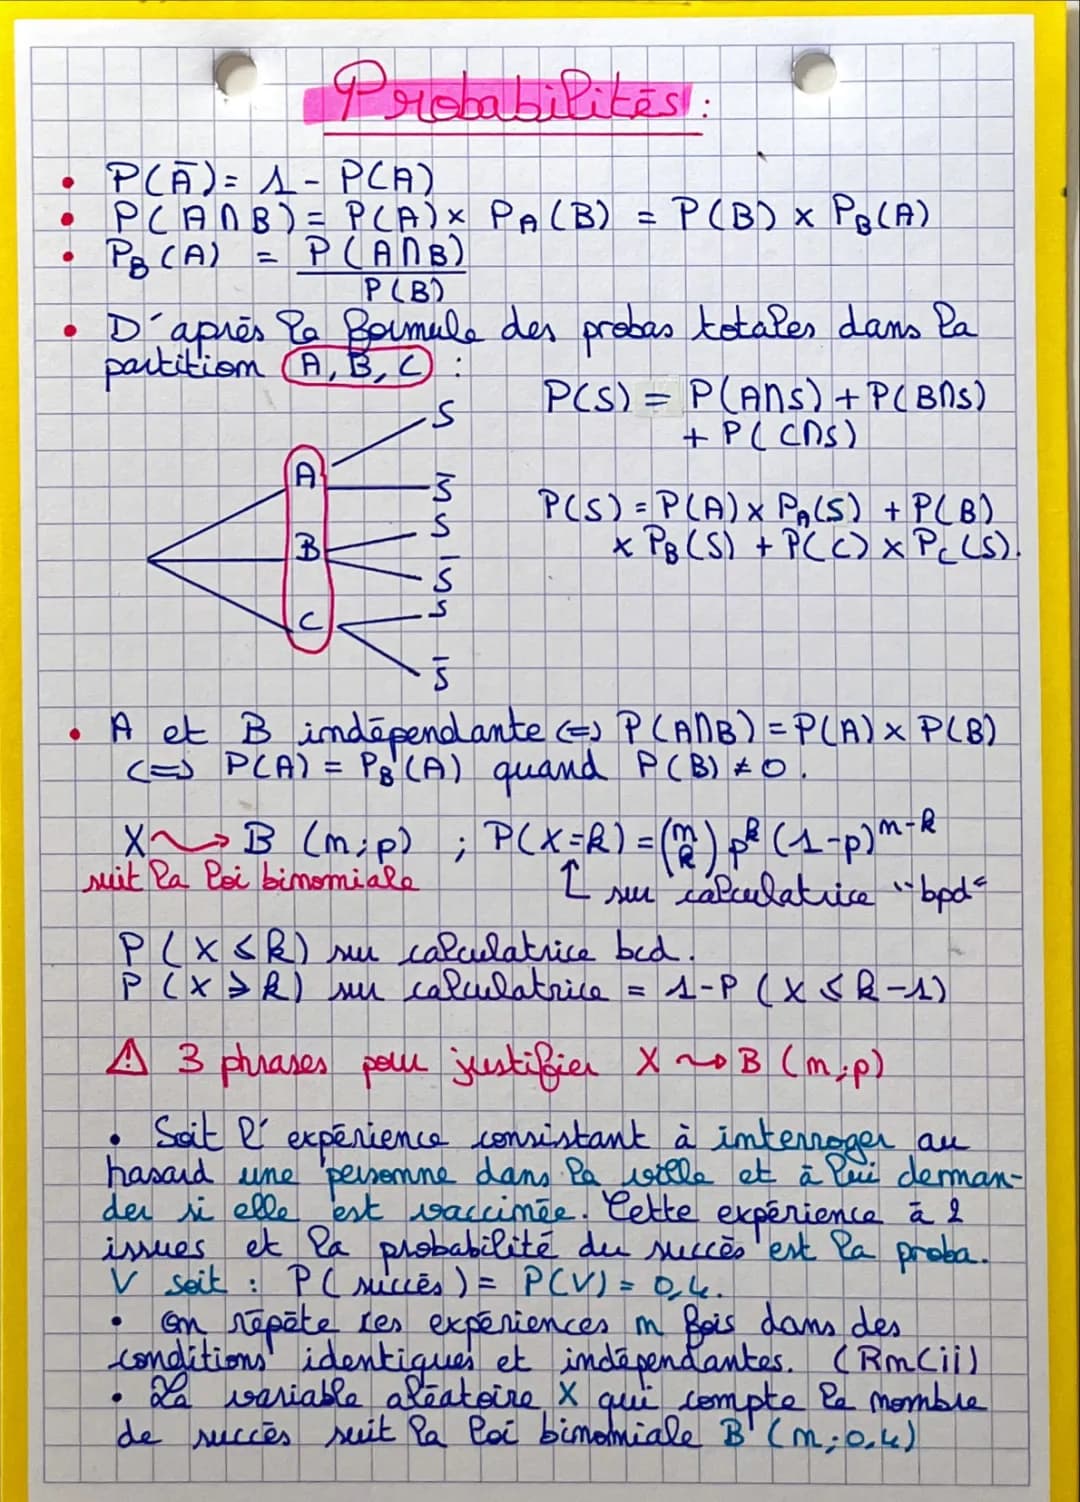 Probabilités :
• P(Ā) = 1 - P(A)
• P(A∩B) = P(A) × P_A(B) = P(B) × P_B(A)
• P_B(A) = P(A∩B)
P(B)
• D'après la formule des probas totales dans la
partition (A, B, C) :
P(S) = P(A∩S) + P(B∩S)
+ P(C∩S)
P(S) = P(A) × P_A(S) + P(B)
× P_B(S) + P(C) × P_C(S).
S
A
S̄
S
B
S̄
S
C
S̄
• A et B indépendante <=> P(A∩B) = P(A) × P(B)
<=> P(A) = P_B(A) quand P(B) ≠ 0.
X ⟿ B (n;p) ; P(X=k) = (n k) p^k (1-p)^n-k
suit la loi binomiale
↑ sur calculatrice "bpd"
P(X ≤ k) sur calculatrice bcd.
P(X ≥ k) sur calculatrice = 1-P (X ≤ k-1)
⚠ 3 phrases pour justifier X ⟿ B (n;p)
• Soit l'expérience consistant à interroger au
hasard une personne dans la ville et à lui deman-
der si elle est vaccinée. Cette expérience à 2
issues et la probabilité du succès est la proba.
V soit : P(succès) = P(V) = 0,4.
• On répète ces expériences n fois dans des
conditions identiques et indépendantes. (RnCii)
• La variable aléatoire X qui compte le nombre
de succès suit la loi binomiale B (n;0,4)